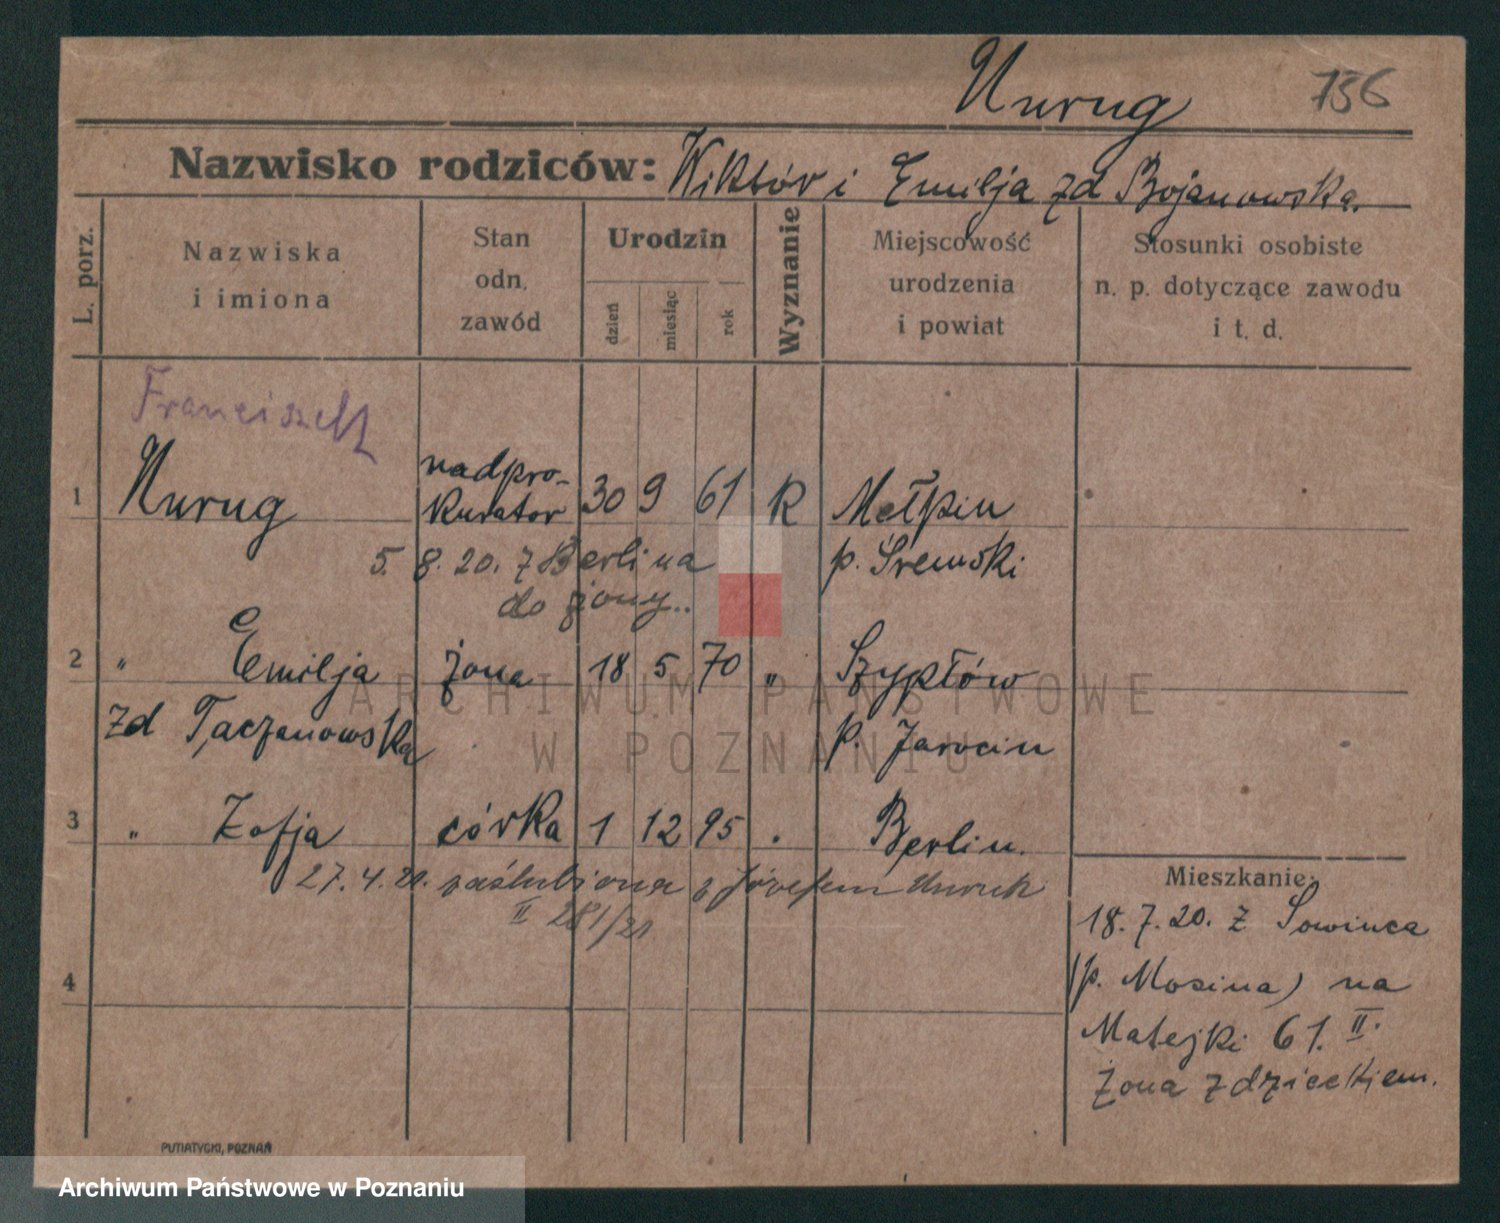 Unrug 736
Nazwisko rodziców: Wiktór i Emilja zd Bojanowska.
L. porz.
Nazwiska
i imiona
Stan
odn.
zawód
Urodzin
dzień
miesiąc
rok
Wyznanie
Miejscowość
urodzenia
i powiat
Stosunki osobiste
n. p. dotyczące zawodu
i t. d.
Franciszek
1 Unrug nadpro-
kurator 30 9 61 k Mełpin
p. Śremski
5. 8. 20. z Berlina
do żony..
2 " Emilja żona 18 5 70 " Szypłów
zd Taczanowska p. Jarocin
3 " Zofja córka 1 12 95 . Berlin.
27.4.21. zaślubiona z Józefem Unruh
II 281/21
4
Mieszkanie:
18. 7. 20. z Sowińca
(p. Mosina) na
Matejki 61. II.
żona z dzieckiem.
PUTIATYCKI, POZNAŃ
ARCHIWUM PAŃSTWOWE
W POZNANIU
Archiwum Państwowe w Poznaniu